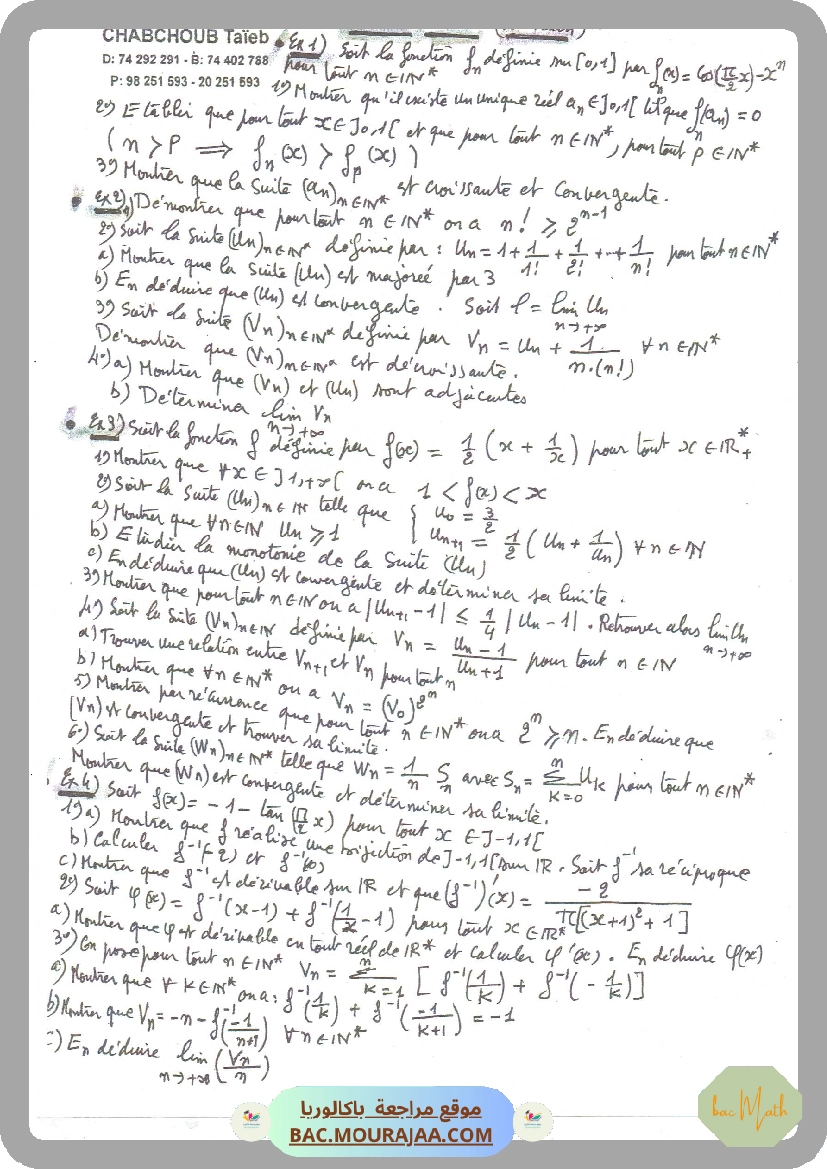 CHABCHOUB Taïeb
D: 74 292 291 - B: 74 402 788
P: 98 251 593 - 20 251 593
Ex 1) Soit la fonction fn définie sur [0,1] par fn(x) = cos(π/2 x) - x^n
pour tout n ∈ IN*
1°) Montrer qu'il existe un unique réel an ∈ ]0,1[ tel que fn(an) = 0
2°) Etablir que pour tout x ∈ ]0,1[ et que pour tout n ∈ IN*, pour tout p ∈ IN*
( n > p ⟹ fn(x) > fp(x) )
3°) Montrer que la suite (an)n∈IN* est croissante et convergente.
Ex 2) 1) Démontrer que pour tout n ∈ IN* on a n! ⩾ 2^(n-1)
2°) Soit la suite (Un)n∈IN* définie par : Un = 1 + 1/1! + 1/2! + ... + 1/n! pour tout n ∈ IN*
a) Montrer que la suite (Un) est majoreé par 3
b) En déduire que (Un) est convergente. Soit l = lim Un n→+∞
3°) Soit la suite (Vn)n∈IN* définie par Vn = Un + 1/(n.(n!)) ∀ n ∈ IN*
Démontrer que (Vn)n∈IN* est décroissante.
4°) a) Montrer que (Vn) et (Un) sont adjacentes
b) Déterminer lim Vn n→+∞
Ex 3) Soit la fonction f définie par f(x) = 1/2 (x + 1/x) pour tout x ∈ IR*+
1°) Montrer que ∀x ∈ ]1,+∞[ on a 1 < f(x) < x
2°) Soit la suite (Un)n∈IN telle que { U0 = 3/2
Un+1 = 1/2 (Un + 1/Un) ∀ n ∈ IN
a) Montrer que ∀n ∈ IN Un ⩾ 1
b) Etudier la monotonie de la suite (Un)
c) En déduire que (Un) est convergente et déterminer sa limite.
3°) Montrer que pour tout n ∈ IN on a |Un+1 - 1| ≤ 1/4 |Un - 1|. Retrouver alors lim Un n→+∞
4°) Soit la suite (Vn)n∈IN définie par Vn = (Un - 1)/(Un + 1) pour tout n ∈ IN
a) Trouver une relation entre Vn+1 et Vn pour tout n
b) Montrer que ∀n ∈ IN* on a Vn = (V0)^2^n
5°) Montrer par récurrence que pour tout n ∈ IN* on a 2^n ⩾ n. En déduire que
(Vn) est convergente et trouver sa limite.
6°) Soit la suite (Wn)n∈IN* telle que Wn = 1/n Sn avec Sn = Σ k=0 n Uk pour tout n ∈ IN*
Montrer que (Wn) est convergente et déterminer sa limite.
Ex 4) Soit f(x) = -1 - tan(π/2 x) pour tout x ∈ ]-1,1[
1°) a) Montrer que f réalise une bijection de ]-1,1[ sur IR. Soit f⁻¹ sa réciproque
b) Calculer f⁻¹(-2) et f⁻¹(0)
c) Montrer que f⁻¹ est dérivable sur IR et que (f⁻¹)'(x) = -2/(π[(x+1)² + 1])
2°) Soit φ(x) = f⁻¹(x-1) + f⁻¹(1/x - 1) pour tout x ∈ IR*
a) Montrer que φ est dérivable en tout réel de IR* et calculer φ'(x). En déduire φ(x)
3°) On pose pour tout n ∈ IN* Vn = Σ k=1 n [ f⁻¹(1/k) + f⁻¹(-1/k) ]
a) Montrer que ∀ k ∈ IN* on a : f⁻¹(1/k) + f⁻¹(-1/(k+1)) = -1
b) Montrer que Vn = -n - f⁻¹(-1/(n+1)) ∀ n ∈ IN*
c) En déduire lim n→+∞ (Vn/n)
موقع مراجعة باكالوريا
BAC.MOURAJAA.COM
bac Math